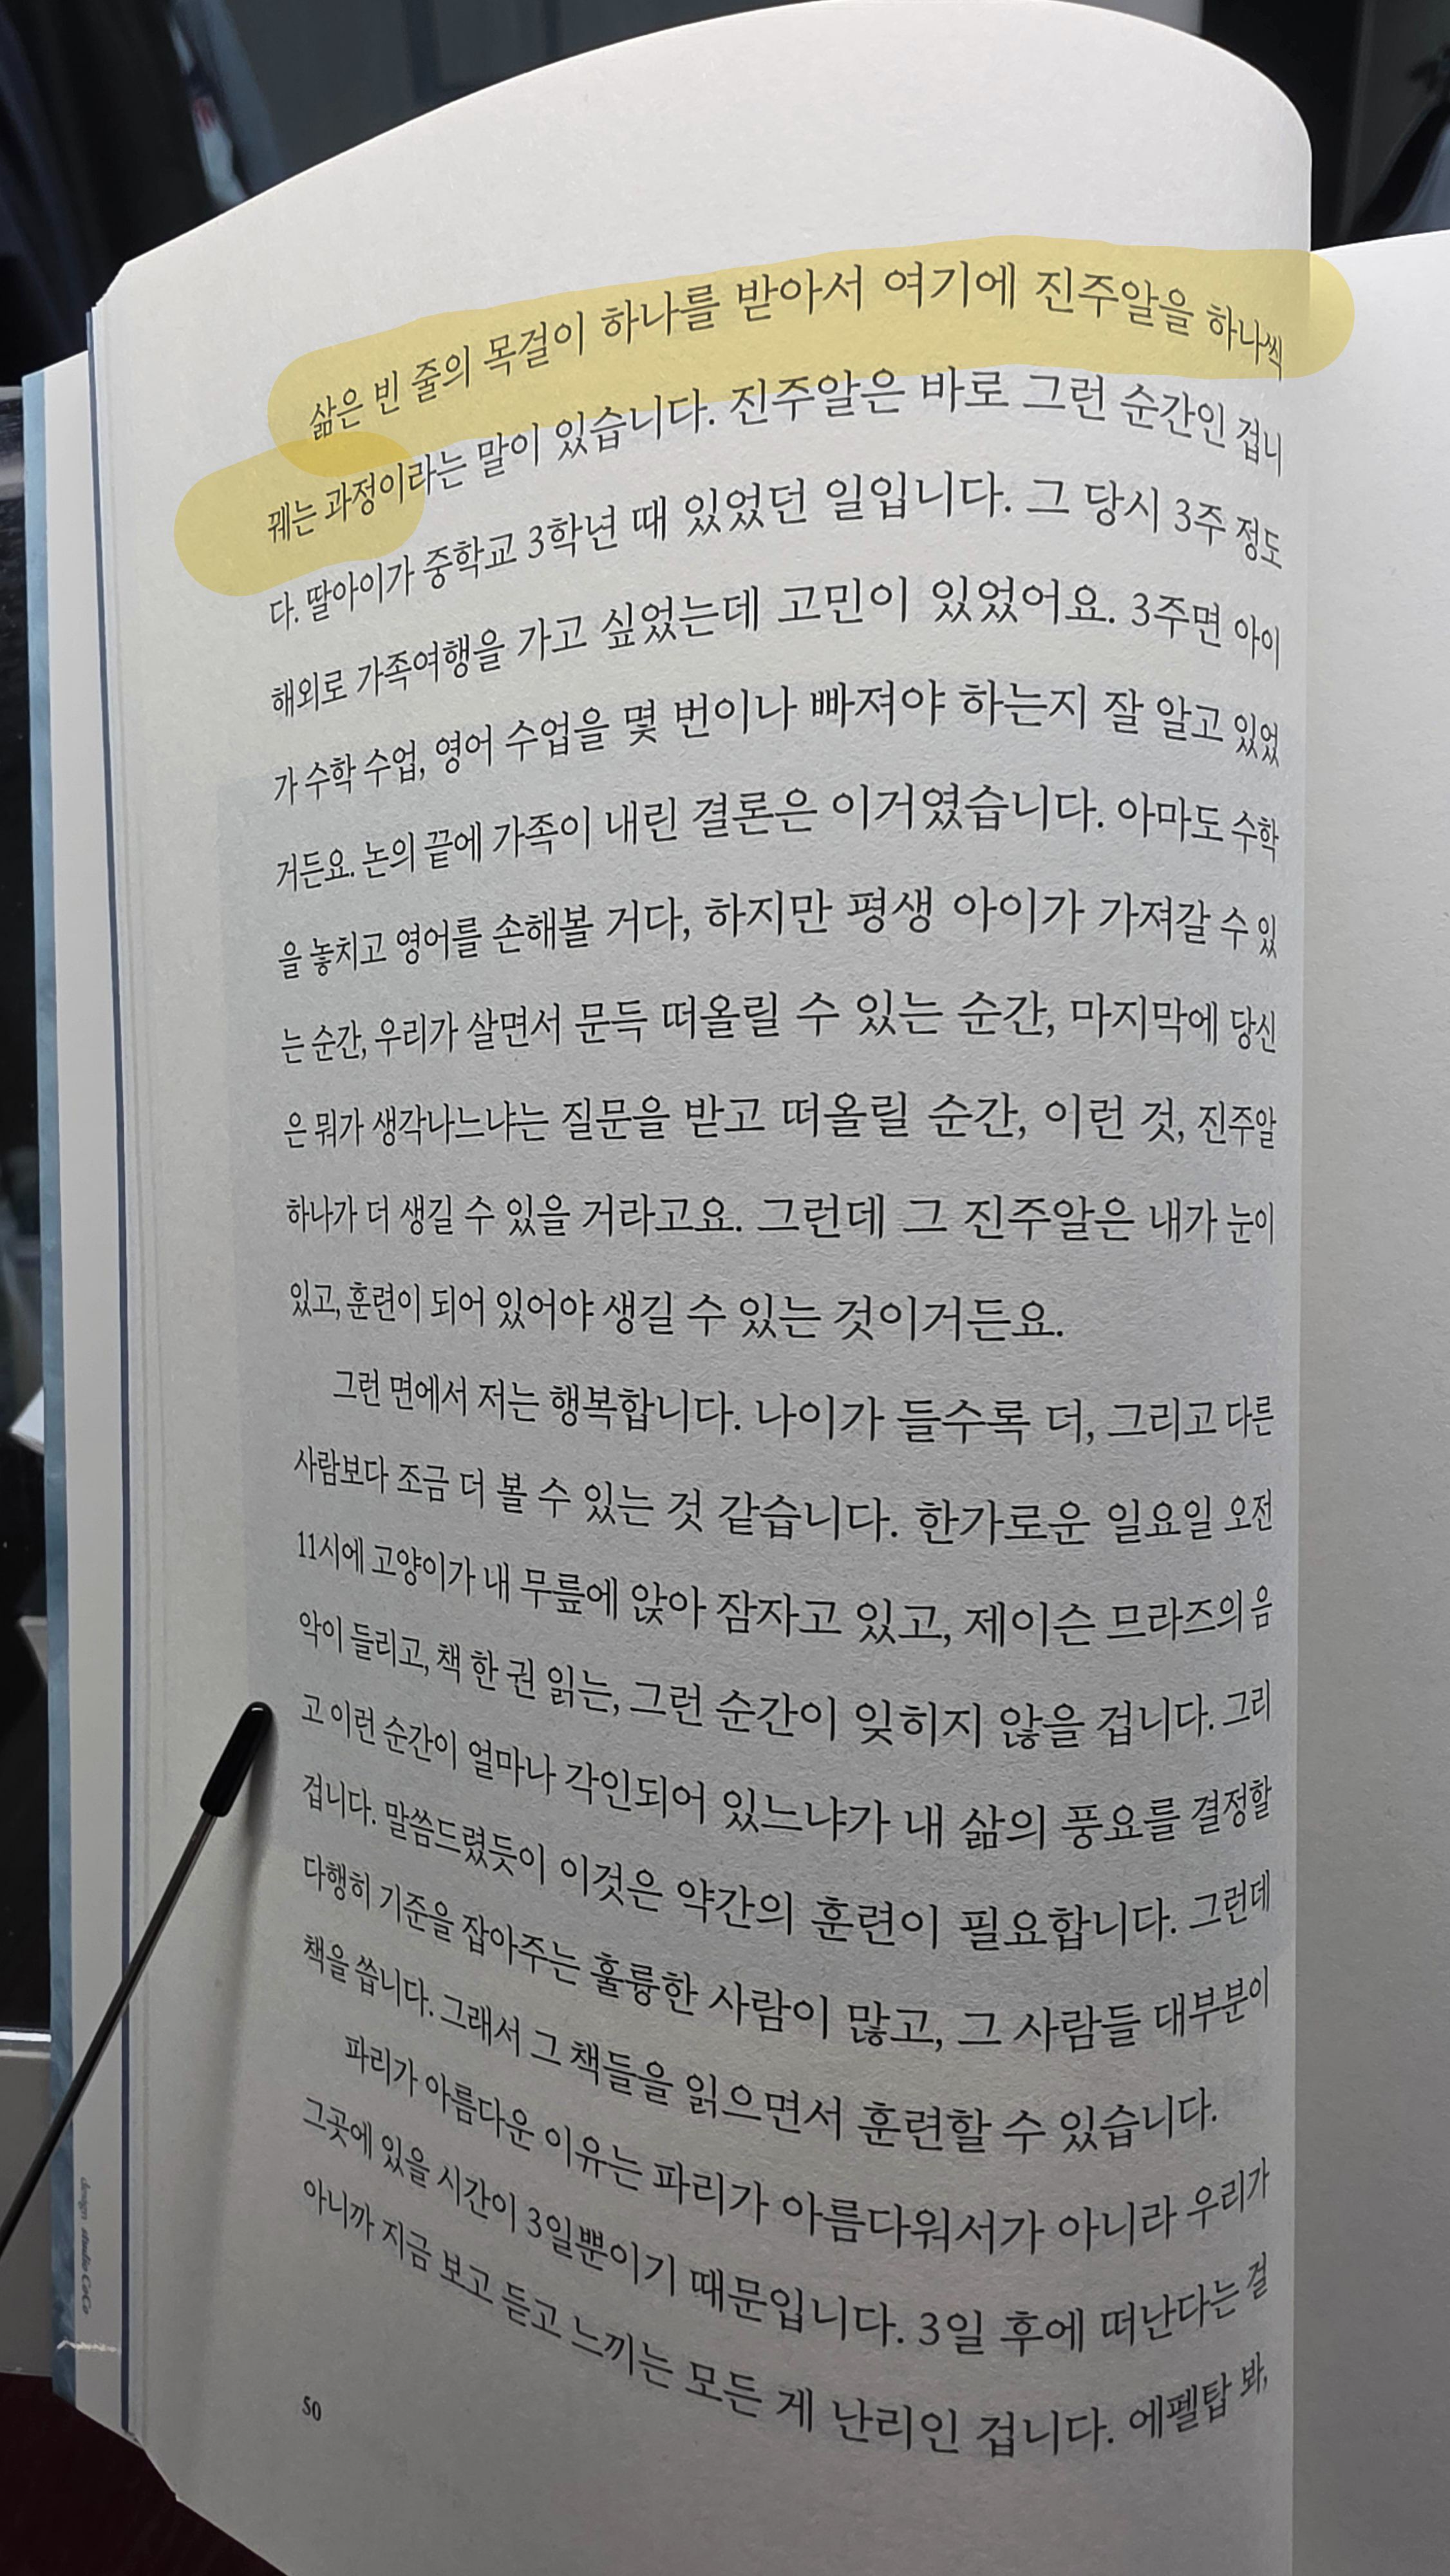 삶은 빈 줄의 목걸이 하나를 받아서 여기에 진주알을 하나씩
꿰는 과정이라는 말이 있습니다. 진주알은 바로 그런 순간인 겁니
다. 딸아이가 중학교 3학년 때 있었던 일입니다. 그 당시 3주 정도
해외로 가족여행을 가고 싶었는데 고민이 있었어요. 3주면 아이
가 수학 수업, 영어 수업을 몇 번이나 빠져야 하는지 잘 알고 있었
거든요. 논의 끝에 가족이 내린 결론은 이거였습니다. 아마도 수학
을 놓치고 영어를 손해볼 거다, 하지만 평생 아이가 가져갈 수 있
는 순간, 우리가 살면서 문득 떠올릴 수 있는 순간, 마지막에 당신
은 뭐가 생각나느냐는 질문을 받고 떠올릴 순간, 이런 것, 진주알
하나가 더 생길 수 있을 거라고요. 그런데 그 진주알은 내가 눈이
있고, 훈련이 되어 있어야 생길 수 있는 것이거든요.
그런 면에서 저는 행복합니다. 나이가 들수록 더, 그리고 다른
사람보다 조금 더 볼 수 있는 것 같습니다. 한가로운 일요일 오전
11시에 고양이가 내 무릎에 앉아 잠자고 있고, 제이슨 므라즈의 음
악이 들리고, 책 한 권 읽는, 그런 순간이 잊히지 않을 겁니다. 그리
고 이런 순간이 얼마나 각인되어 있느냐가 내 삶의 풍요를 결정할
겁니다. 말씀드렸듯이 이것은 약간의 훈련이 필요합니다. 그런데
다행히 기준을 잡아주는 훌륭한 사람이 많고, 그 사람들 대부분이
책을 씁니다. 그래서 그 책들을 읽으면서 훈련할 수 있습니다.
파리가 아름다운 이유는 파리가 아름다워서가 아니라 우리가
그곳에 있을 시간이 3일뿐이기 때문입니다. 3일 후에 떠난다는 걸
아니까 지금 보고 듣고 느끼는 모든 게 난리인 겁니다. 에펠탑 봐,
50
design studio CoCo